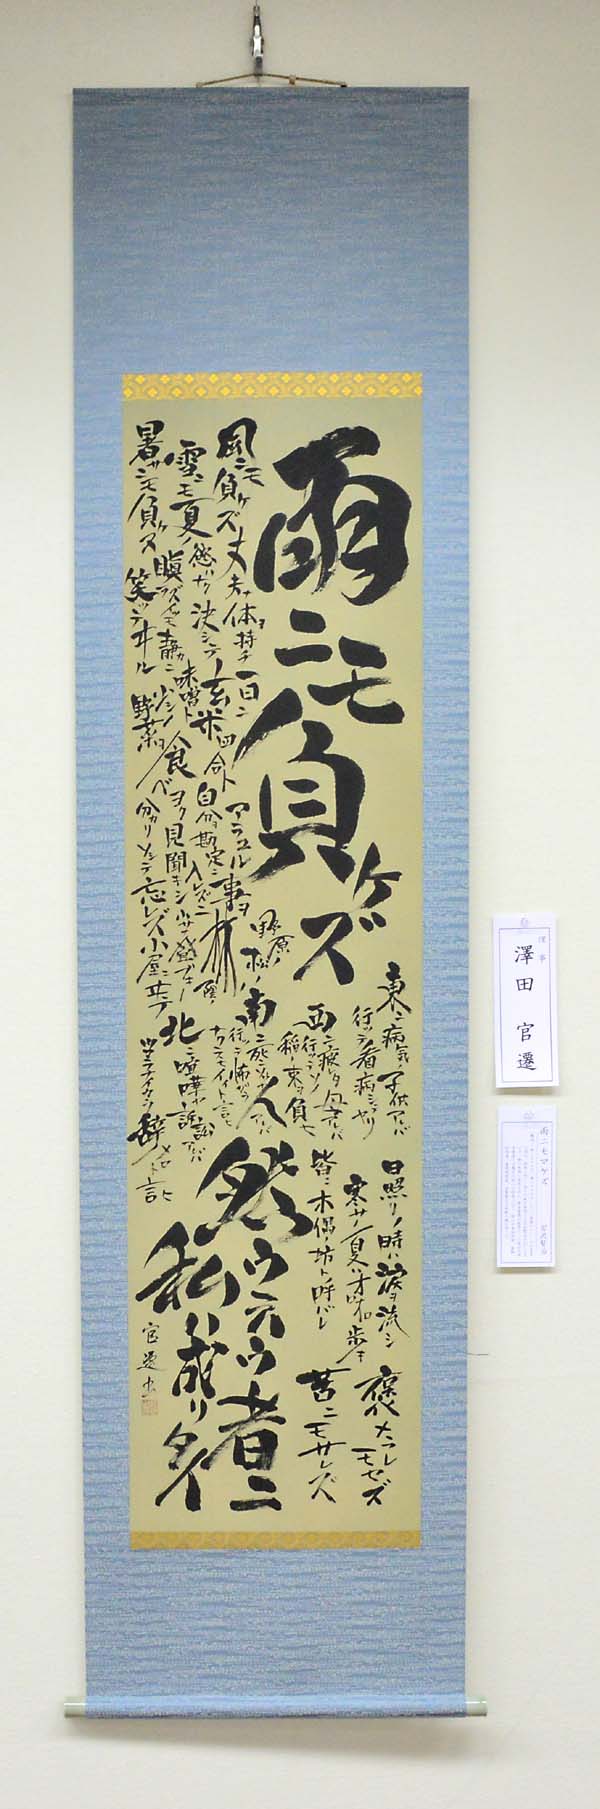 雨ニモ
負ケズ
風ニモ
負ケズ
雪ニモ夏ノ
暑サニモ負ケヌ
丈夫ナ体ヲ持チ
決シテ
瞋ラズ
静カニ
笑ッテヰル
一日ニ
玄米四合ト
味噌ト
少シノ
野菜ヲ食ベ
アラユル事ヲ
自分ヲ勘定ニ
入レズニ
ヨク見聞キシ
分カリ
ソシテ忘レズ
野原ノ
松ノ
林ノ
陰ノ
小屋ニ
東ニ病気ノ子供アレバ
行ッテ看病シテヤリ
西ニ疲レタ母アレバ
行ッテソノ
稲ノ束ヲ負ヒ
南ニ死ニソウナ人アレバ
行ッテ怖ガラ
ナクテモイイト言ヒ
北ニ喧嘩ヤ訴訟アレバ
ツマラナイカラ
辞メロト言ヒ
日照リノ時ハ涙ヲ流シ
寒サノ夏ハオロオロ歩キ
皆ニ木偶ノ坊ト呼バレ
褒メラレ
モセズ
苦ニモサレズ
然ウ云ウ者ニ
私ハ成リタイ
官遷書
理事
澤田 官遷
雨ニモマケズ
宮沢賢治